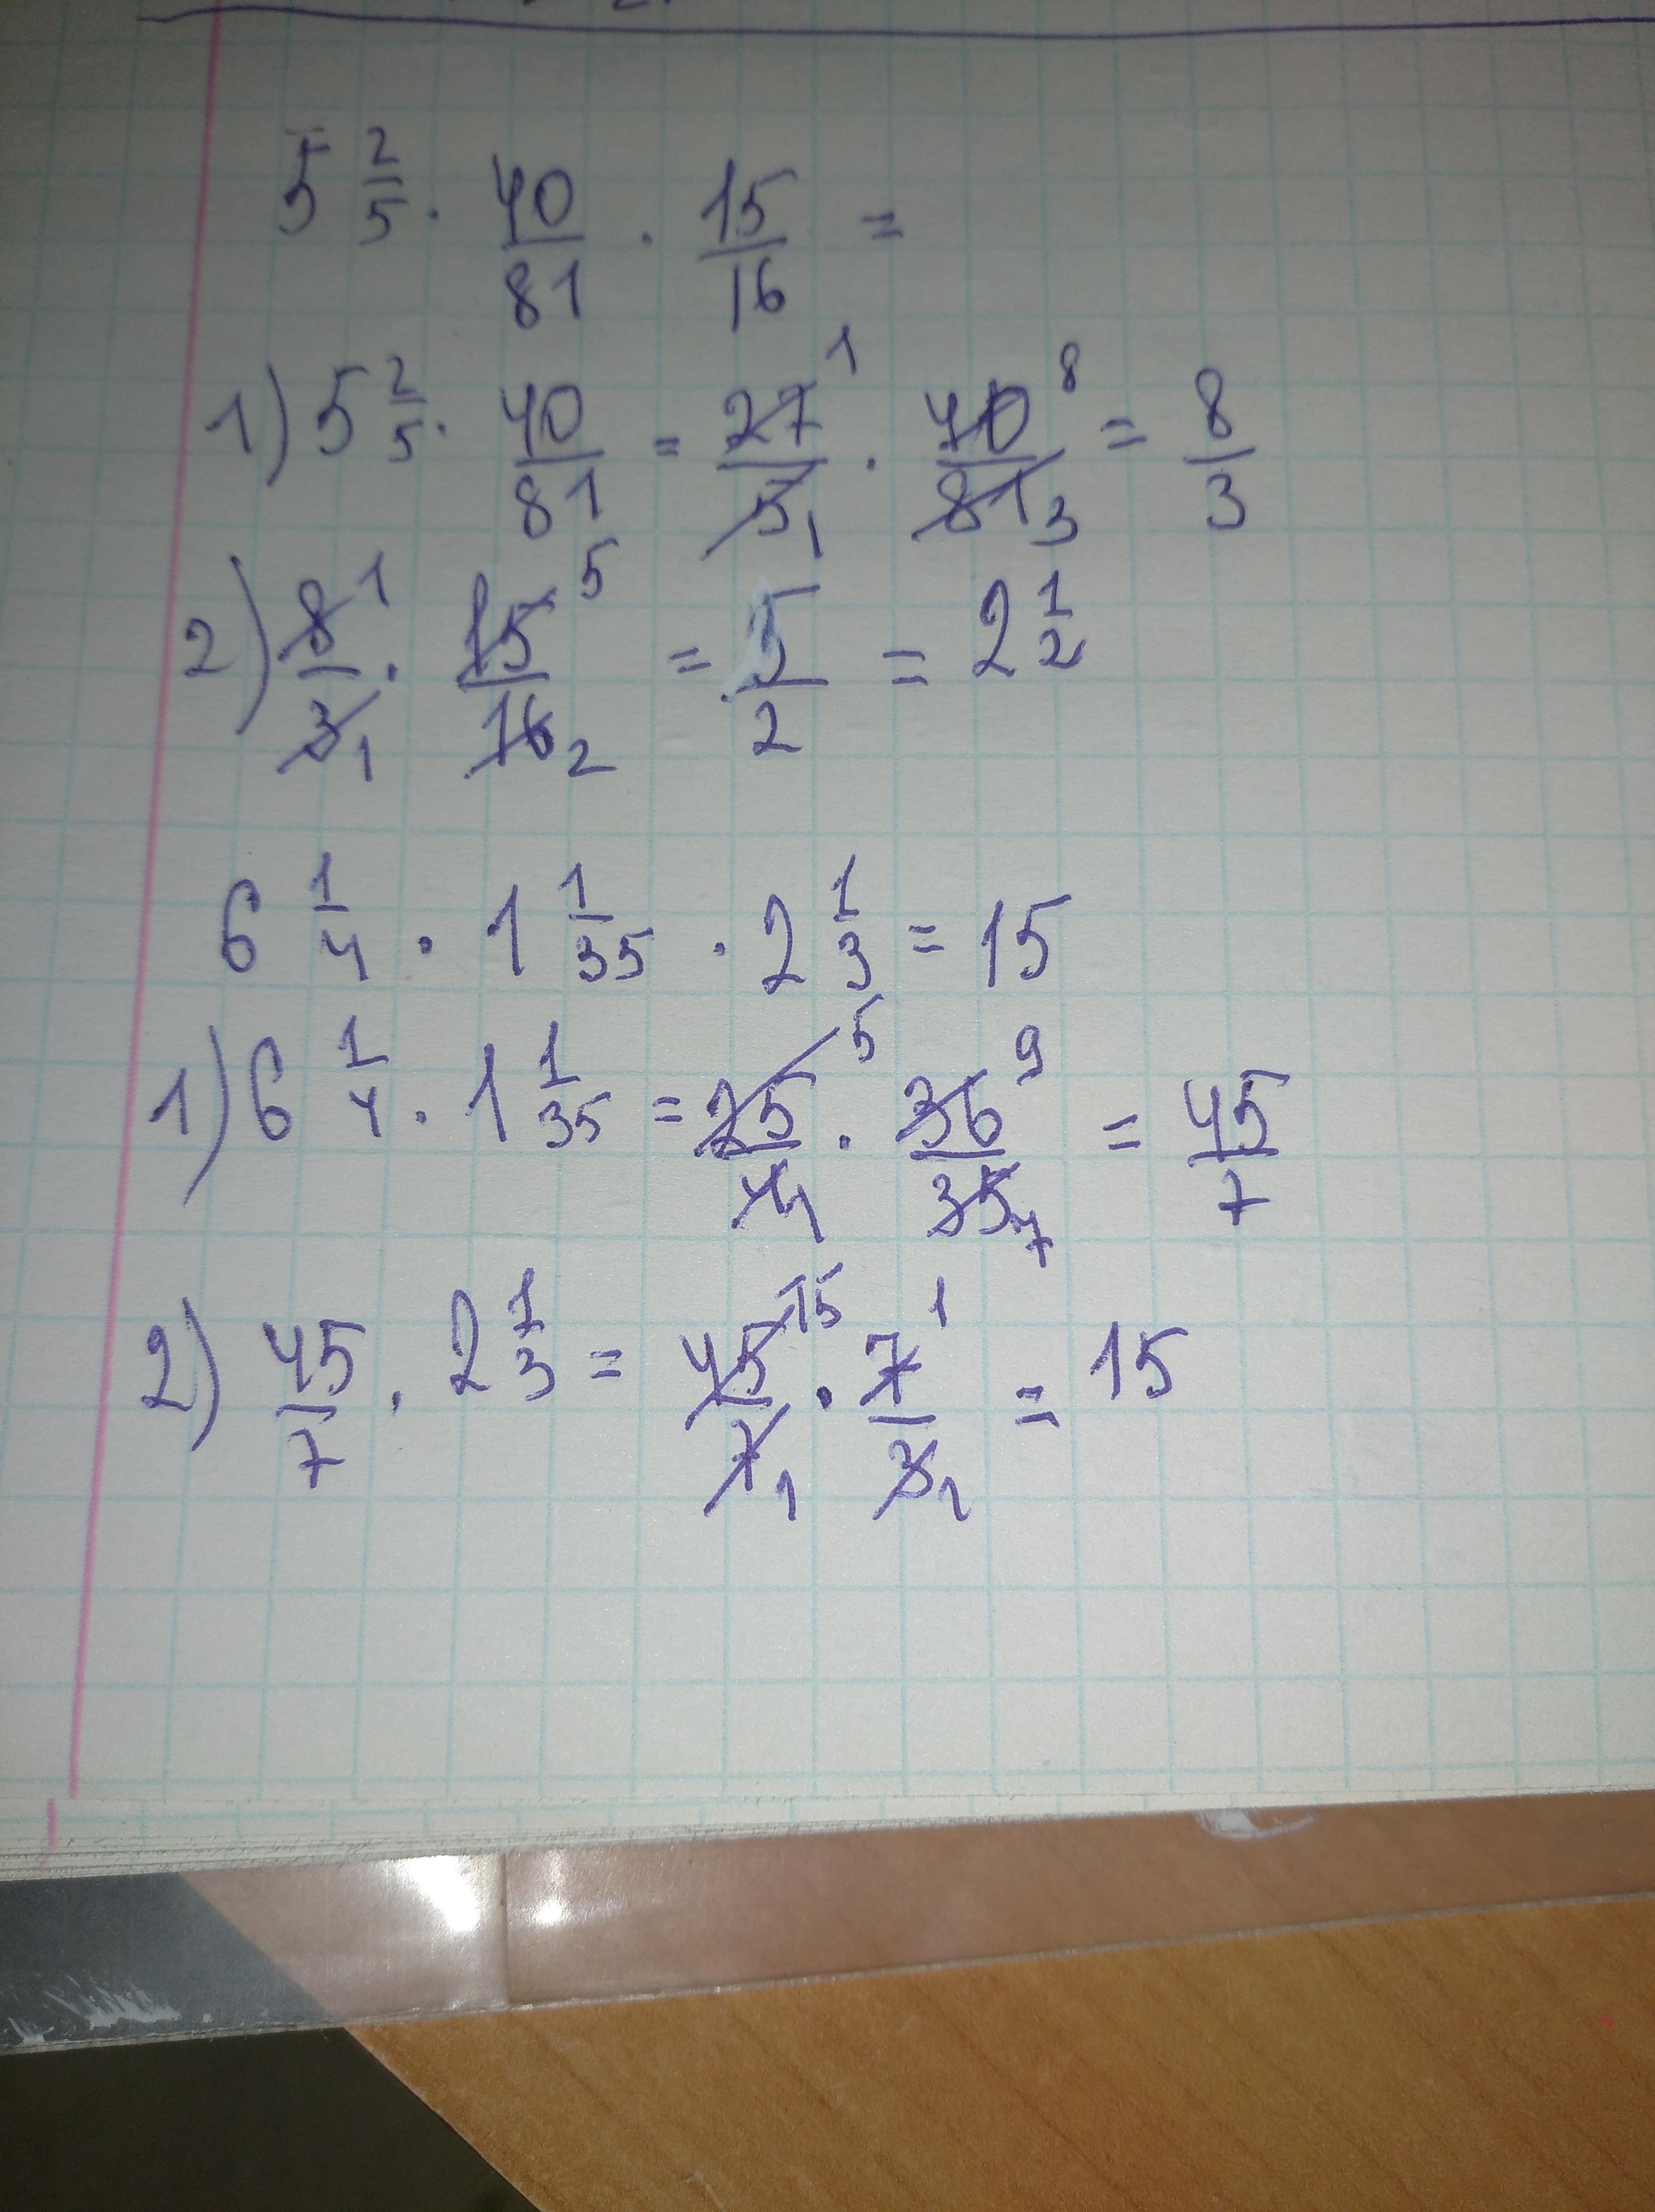 5 2/5 · 40/81 · 15/16 =
1) 5 2/5 · 40/81 = 27/5 1 1 · 40/81 8 3 = 8/3
2) 8/3 1 1 · 15/16 5 2 = 5/2 = 2 1/2
6 1/4 · 1 1/35 · 2 1/3 = 15
1) 6 1/4 · 1 1/35 = 25/4 5 1 · 36/35 9 7 = 45/7
2) 45/7 · 2 1/3 = 45/7 15 1 · 7/3 1 1 = 15